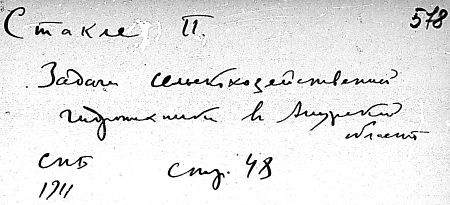 Стакле П. 578
Задачи сельскохозяйственной
гидротехники в Амурской
области
СПБ стр. 48
1911